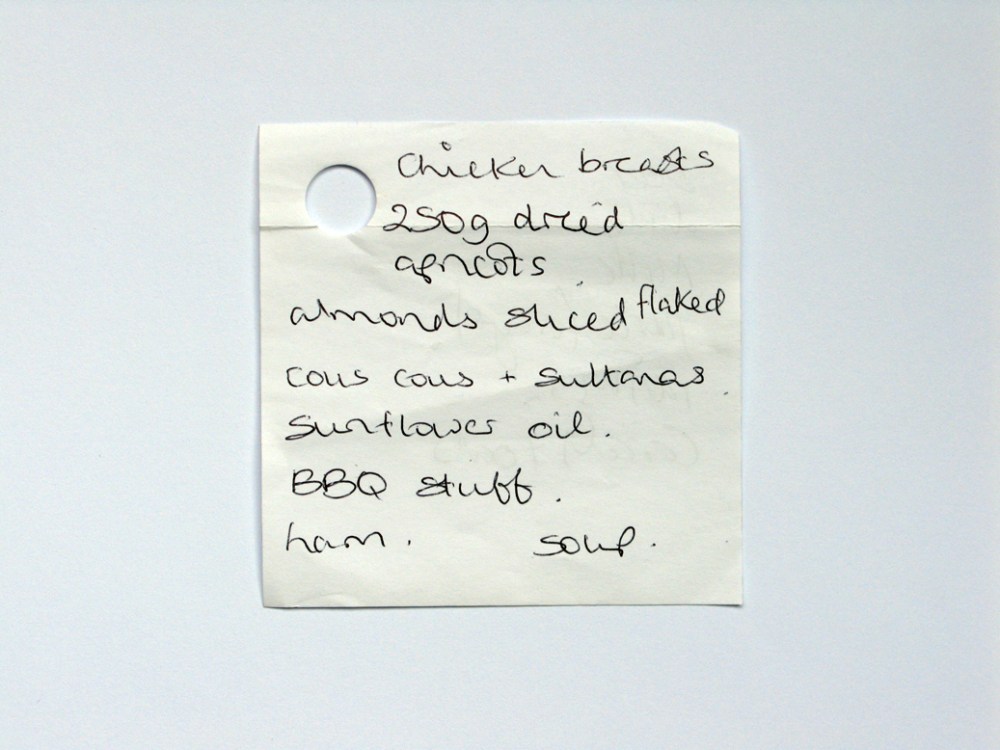 Chicken breasts
250g dried
apricots
almonds sliced flaked
cous cous + sultanas
Sunflower oil.
BBQ stuff.
ham. soup.